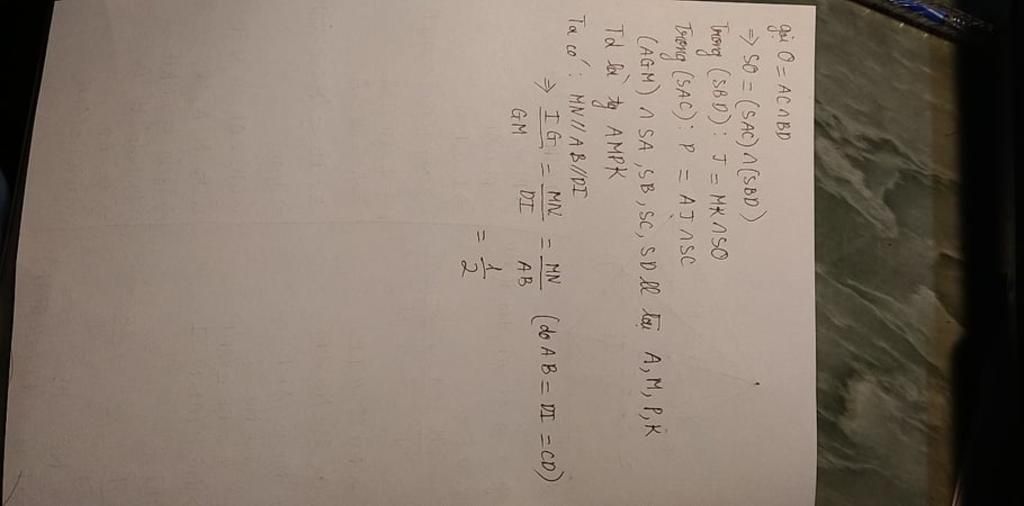 gọi O = AC∩BD
⇒ SO = (SAC)∩(SBD)
Trong (SBD): J = MK∩SO
Trong (SAC): P = AJ∩SC
(AGM) ∩ SA, SB, SC, SD ll tại A, M, P, K
Td là tg AMPK
Ta có: MN//AB//DI
⇒ IG/GM = MN/DI = MN/AB (do AB = DI = CD)
= 1/2